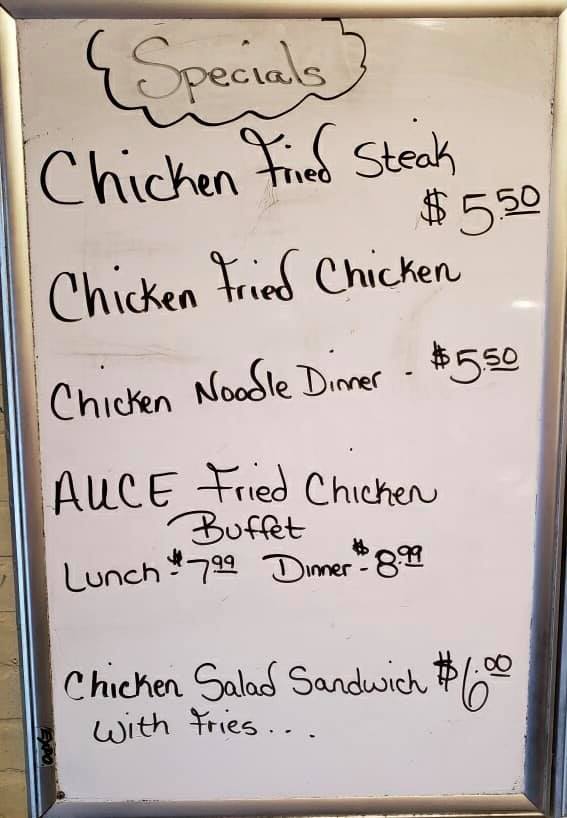 Specials
Chicken Fried Steak
$5.50
Chicken Fried Chicken
Chicken Noodle Dinner - $5.50
AUCE Fried Chicken
Buffet
Lunch - $7.99 Dinner - $8.99
Chicken Salad Sandwich $6.00
With Fries...